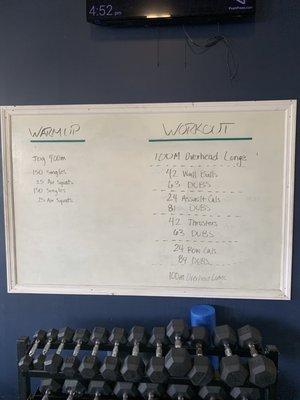 4:52
WARM UP
Jog 400m
150 Singles
25 Air Squats
150 Singles
25 Air Squats
WORKOUT
100M Overhead Lunge
42 Wall Balls
63 DUBS
24 Assault Cals
81 DUBS
42 Thrusters
63 DUBS
24 Row Cals
84 DUBS
100m Overhead Lunge